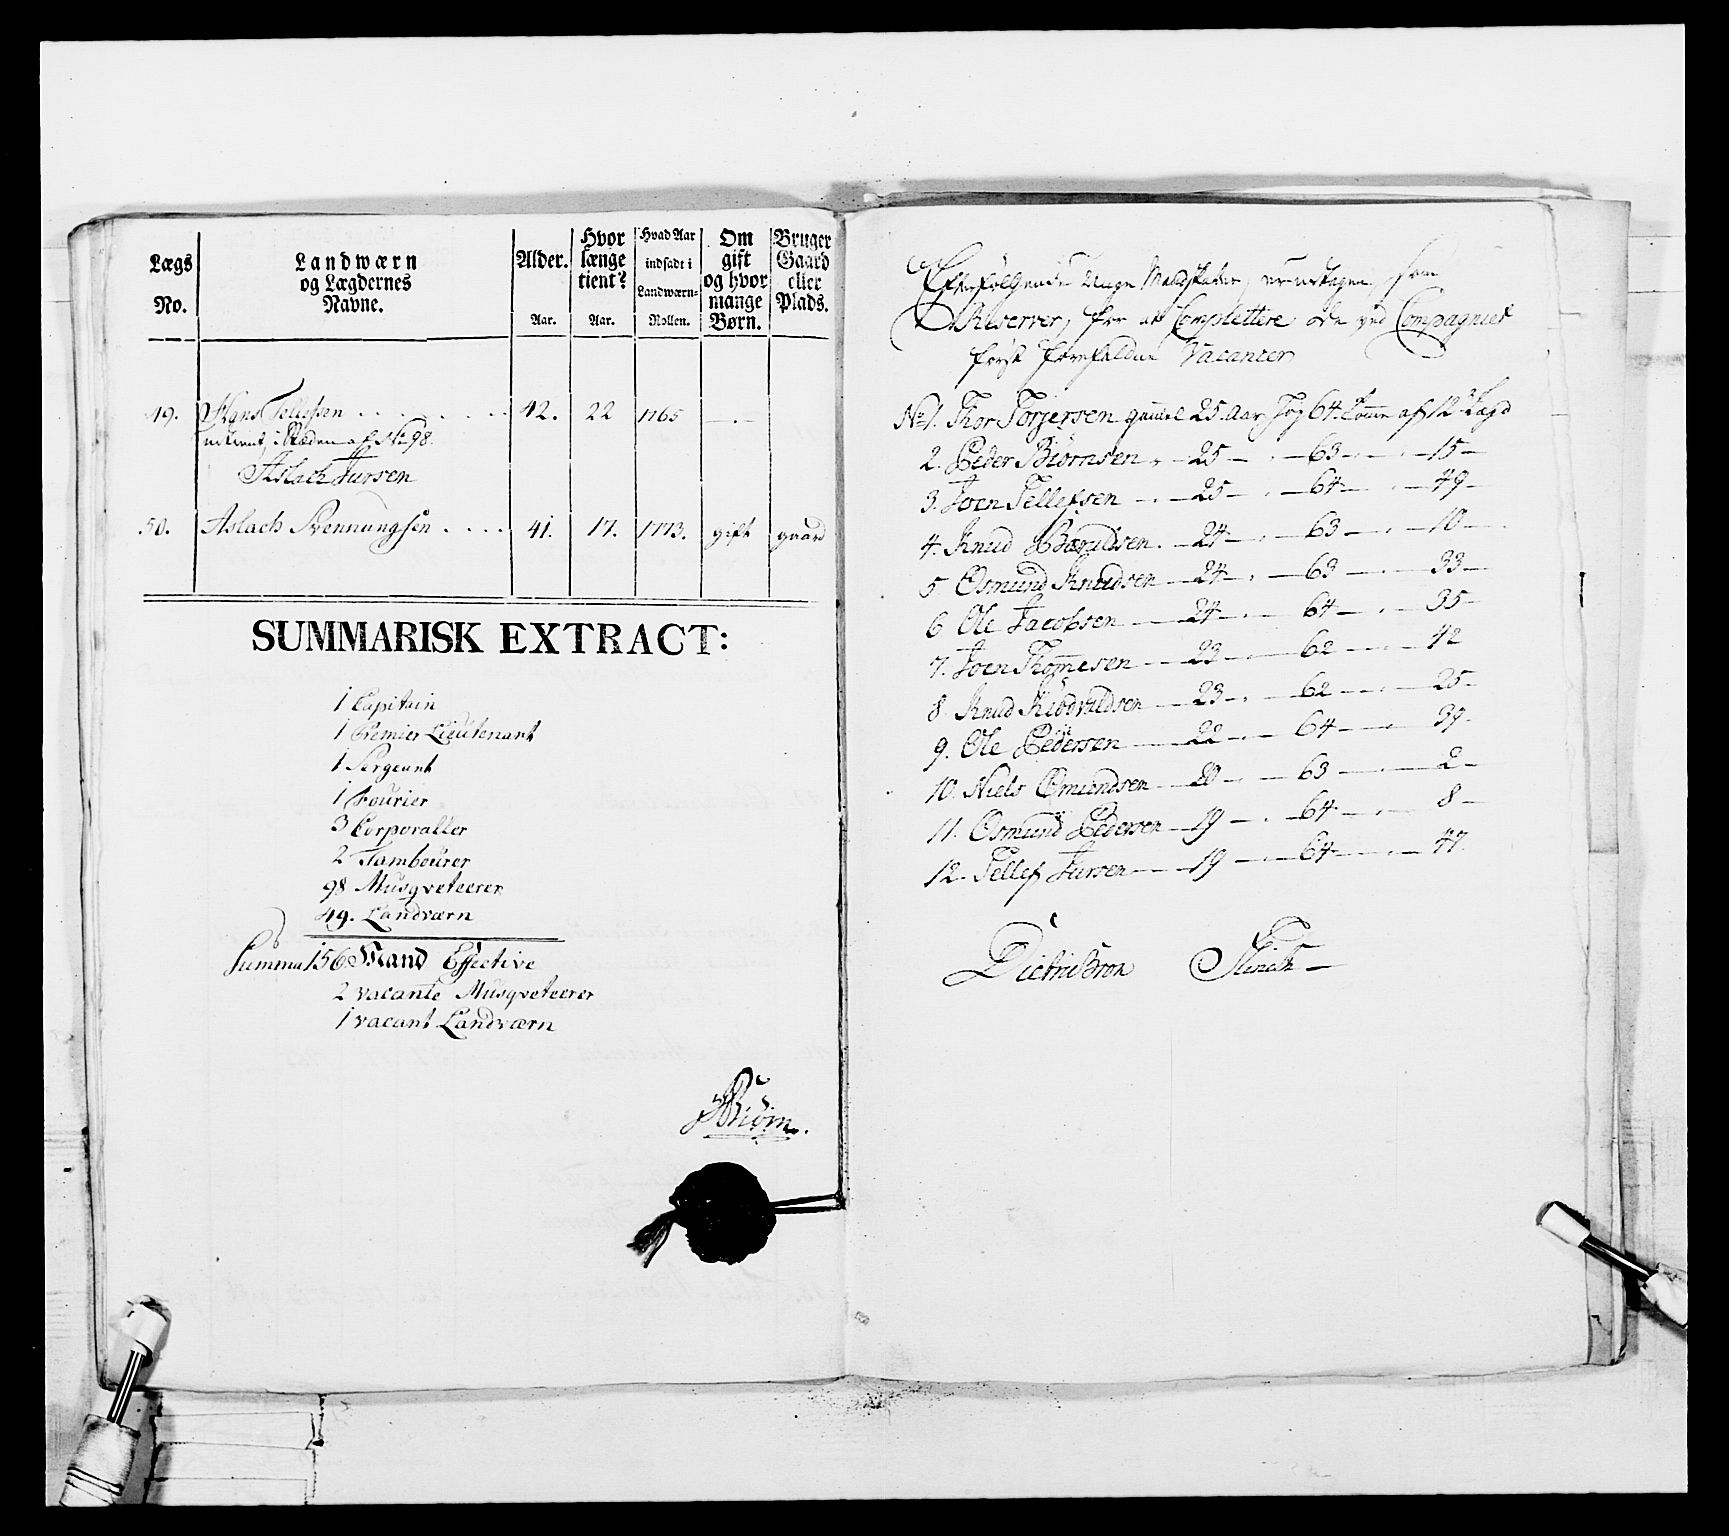 Lægs No. | Landwærn og Lægdernes Navne. | Alder. Aar. | Hvor længe tient? Aar. | Hvad Aar indsadt i Landwærn-Rollen. | Om gift og hvor mange Børn. | Bruger Gaard eller Plads.
49. Hans Tellefsen . . . . . . 42. 22 1765 —.—
i Stæden af No 98.
Aslach Jursen
50. Aslach Svennungsen . . . . 41. 17. 1773. gift gaard
SUMMARISK EXTRACT:
1 Capitain
1 Premier Lieutenant
1 Sergeant
1 Fourier
3 Corporaller
2 Tambourer
98 Musqveteerer
49. Landværn
Summa 156 Mand Effective
2 vacante Musqveteerer
1 vacant Landværn
Biørn.
Efterfølgende Unge Mandskaber, som
Reserver, for at Complettere de ved Compagniet
først forefaldne Vacancer
No 1. Thor Torjersen gammel 25. Aar Høy 64. Tomer af 12 Lægd
2. Peder Biørnsen 25 — 63 — 15 —
3. Joen Tellefsen 25 — 64 — 49 —
4. Knud Haraldsen 24 — 63 — 10 —
5 Osmund Knudsen 24 — 63 — 33 —
6 Ole Jacobsen 24 — 64 — 35 —
7. Joen Thomesen 23 — 62 — 42
8 Knud 23 — 62 — 25 —
9. Ole Pedersen 22 — 64 — 39 —
10. Niels Osmundsen 20 — 63 — 2 —
11. Osmund Pedersen 19 — 64 — 8 —
12. Tellef Jursen 19 — 64 — 47.